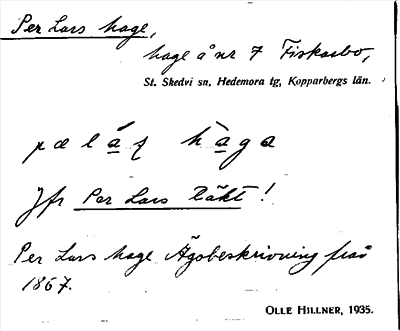 Per Lars hage,
hage å nr 7 Fiskarbo,
St. Skedvi sn, Hedemora tg, Kopparbergs län.
hàga
Jfr Per Lars täkt!
Per Lars hage Ägobeskrivning från
1867.
OLLE HILLNER, 1935.